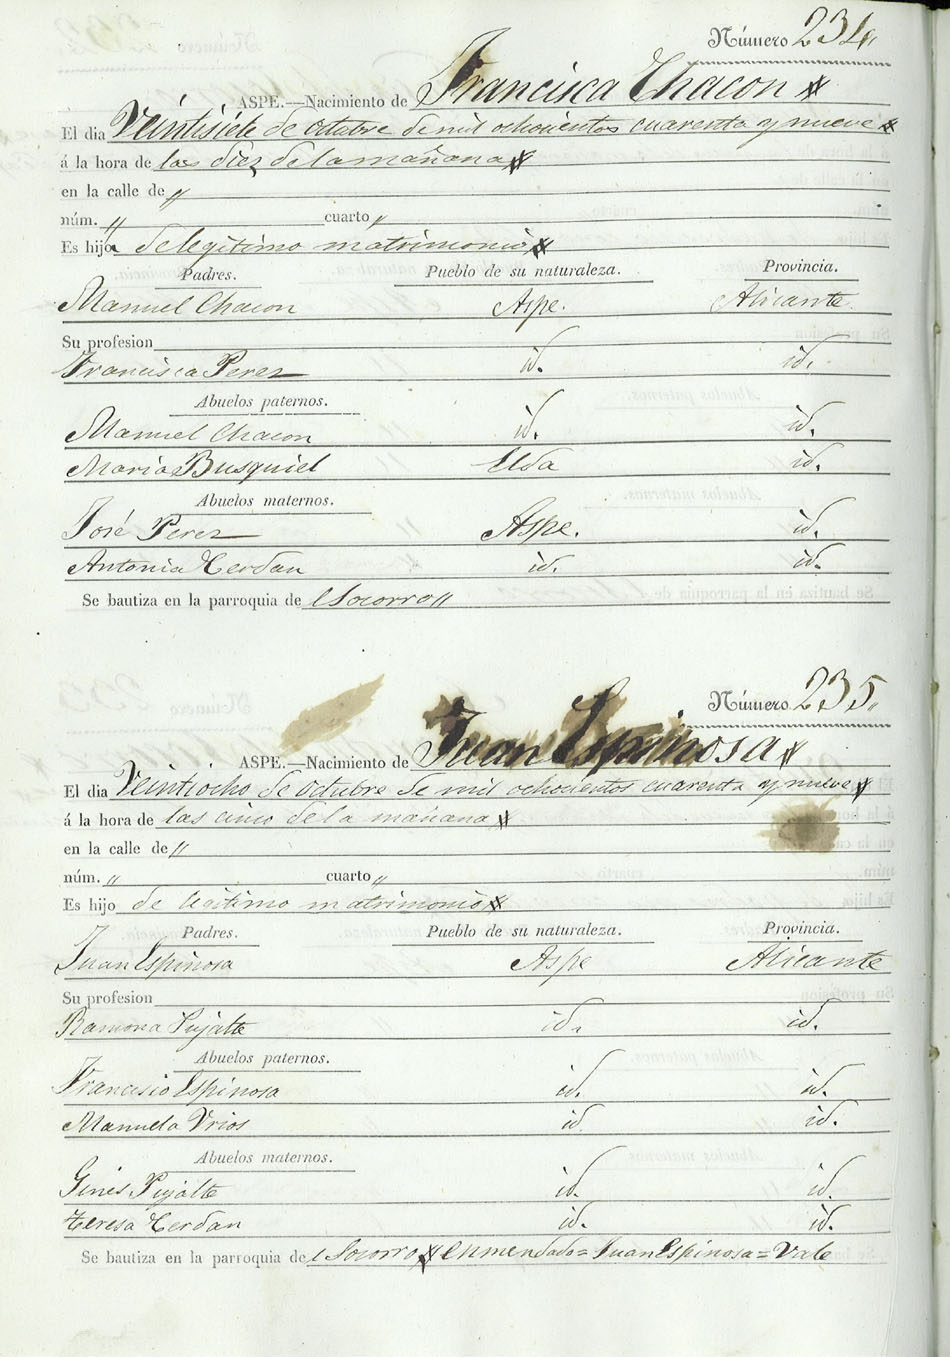 Número 234„
ASPE.—Nacimiento de Francisca Chacon
El dia Veintisiete de octubre de mil ochocientos cuarenta y nueve
á la hora de las diez de la mañana
en la calle de „
núm. „ cuarto „
Es hija de legitimo matrimonio
Padres. Pueblo de su naturaleza. Provincia.
Manuel Chacon Aspe. Alicante
Su profesion
Francisca Perez id. id.
Abuelos paternos.
Manuel Chacon id. id.
Maria Busquiel Elda id.
Abuelos maternos.
José Perez Aspe. id.
Antonia Cerdan id. id.
Se bautiza en la parroquia del Socorro „
Número 235„
ASPE.—Nacimiento de Juan Espinosa
El dia Veintiocho de octubre de mil ochocientos cuarenta y nueve
á la hora de las cinco de la mañana
en la calle de „
núm. „ cuarto „
Es hijo de legitimo matrimonio
Padres. Pueblo de su naturaleza. Provincia.
Juan Espinosa Aspe Alicante
Su profesion
Ramona Pujalte id. id.
Abuelos paternos.
Francisco Espinosa id. id.
Manuela Vrios id. id.
Abuelos maternos.
Gines Pujalte id. id.
Teresa Cerdan id. id.
Se bautiza en la parroquia del Socorro enmendado=Juan Espinosa=Vale